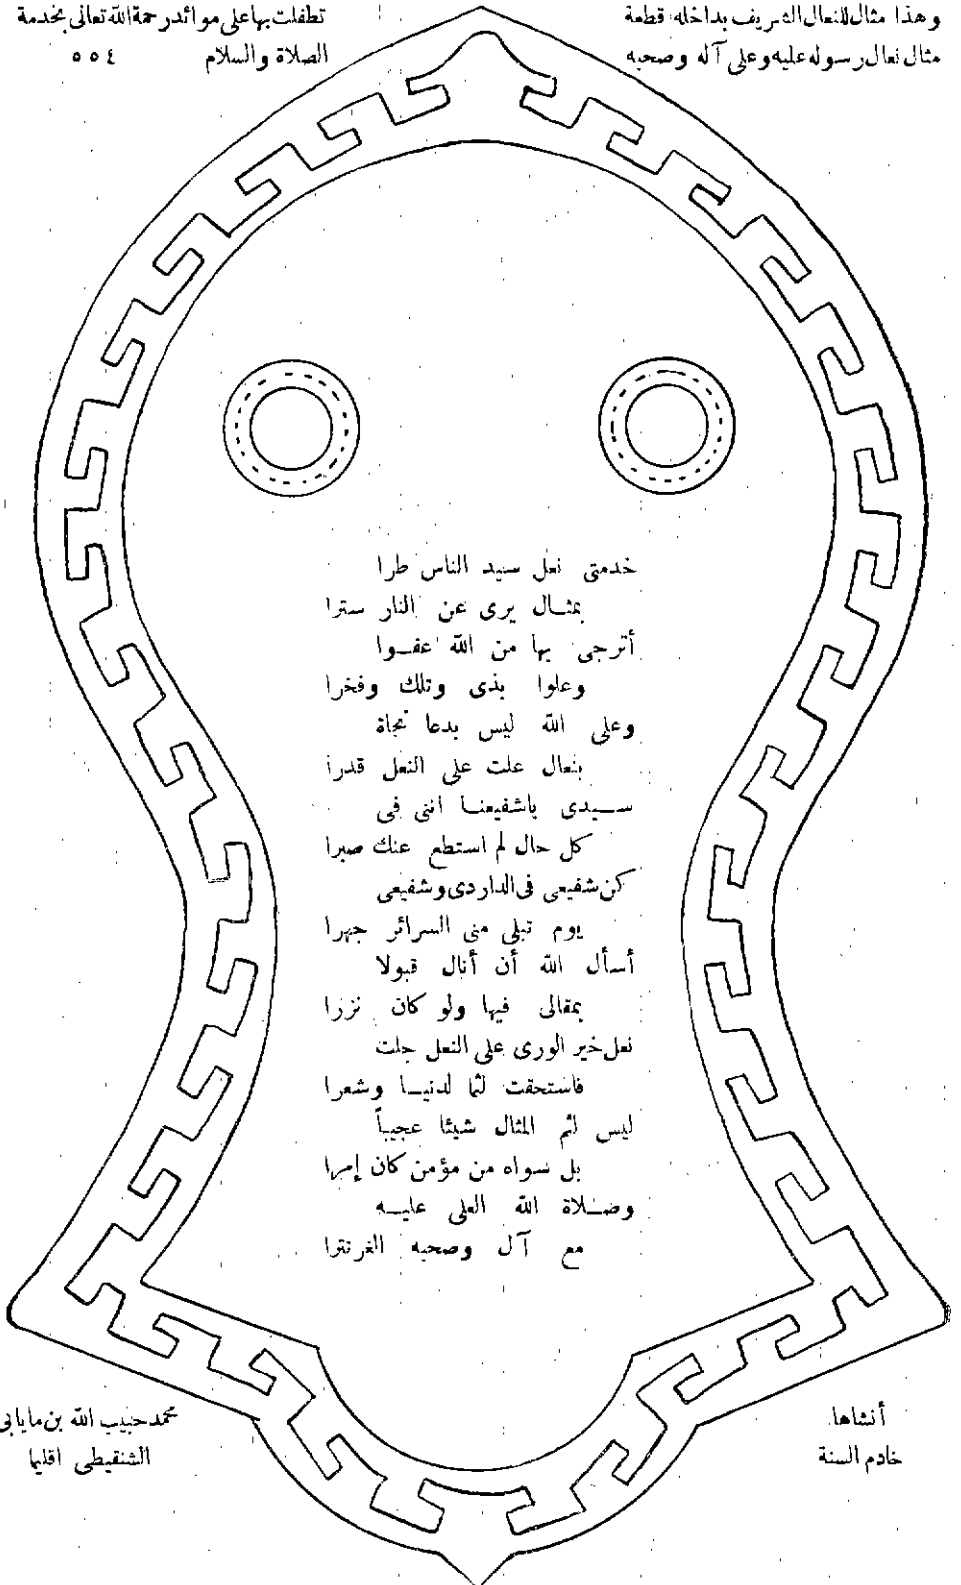 وهذا مثال للنعال الشريف بداخله قطعة تطفلت بها على موائد رحمة الله تعالى بخدمة
مثال نعال رسوله عليه وعلى آله وصحبه الصلاة والسلام ٥٥٤
خدمتى نعل سيد الناس طرا
بمثال يرى عن النار سترا
أترجى بها من الله عفوا
وعلوا بذى وتلك وفخرا
وعلى الله ليس بدعا نجاة
بنعال علت على النعل قدرا
سيدى ياشفيعنا اننى فى
كل حال لم استطع عنك صبرا
كن شفيعى فى الدار دى وشفيعى
يوم تبلى منى السرائر جهرا
أسأل الله أن أنال قبولا
بمقالى فيها ولو كان نزرا
نعل خير الورى على النعل جلت
فاستحقت لثما لدنيا وشعرا
ليس لثم المثال شيئا عجيباً
بل سواه من مؤمن كان إمرا
وصلاة الله العلى عليه
مع آل وصحبه الغر تترا
أنشاها محمد حبيب الله بن مايابى
خادم السنة الشنقيطى اقليما